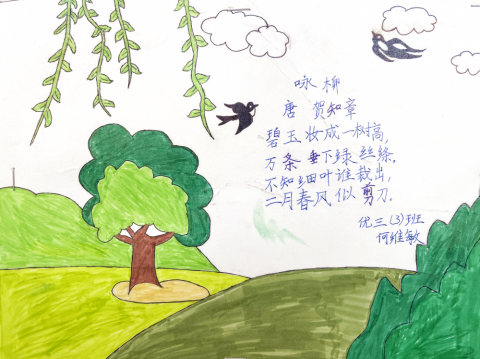 咏柳
唐 贺知章
碧玉妆成一树高,
万条垂下绿丝绦。
不知细叶谁裁出,
二月春风似剪刀.
优三(3)班
何维敏